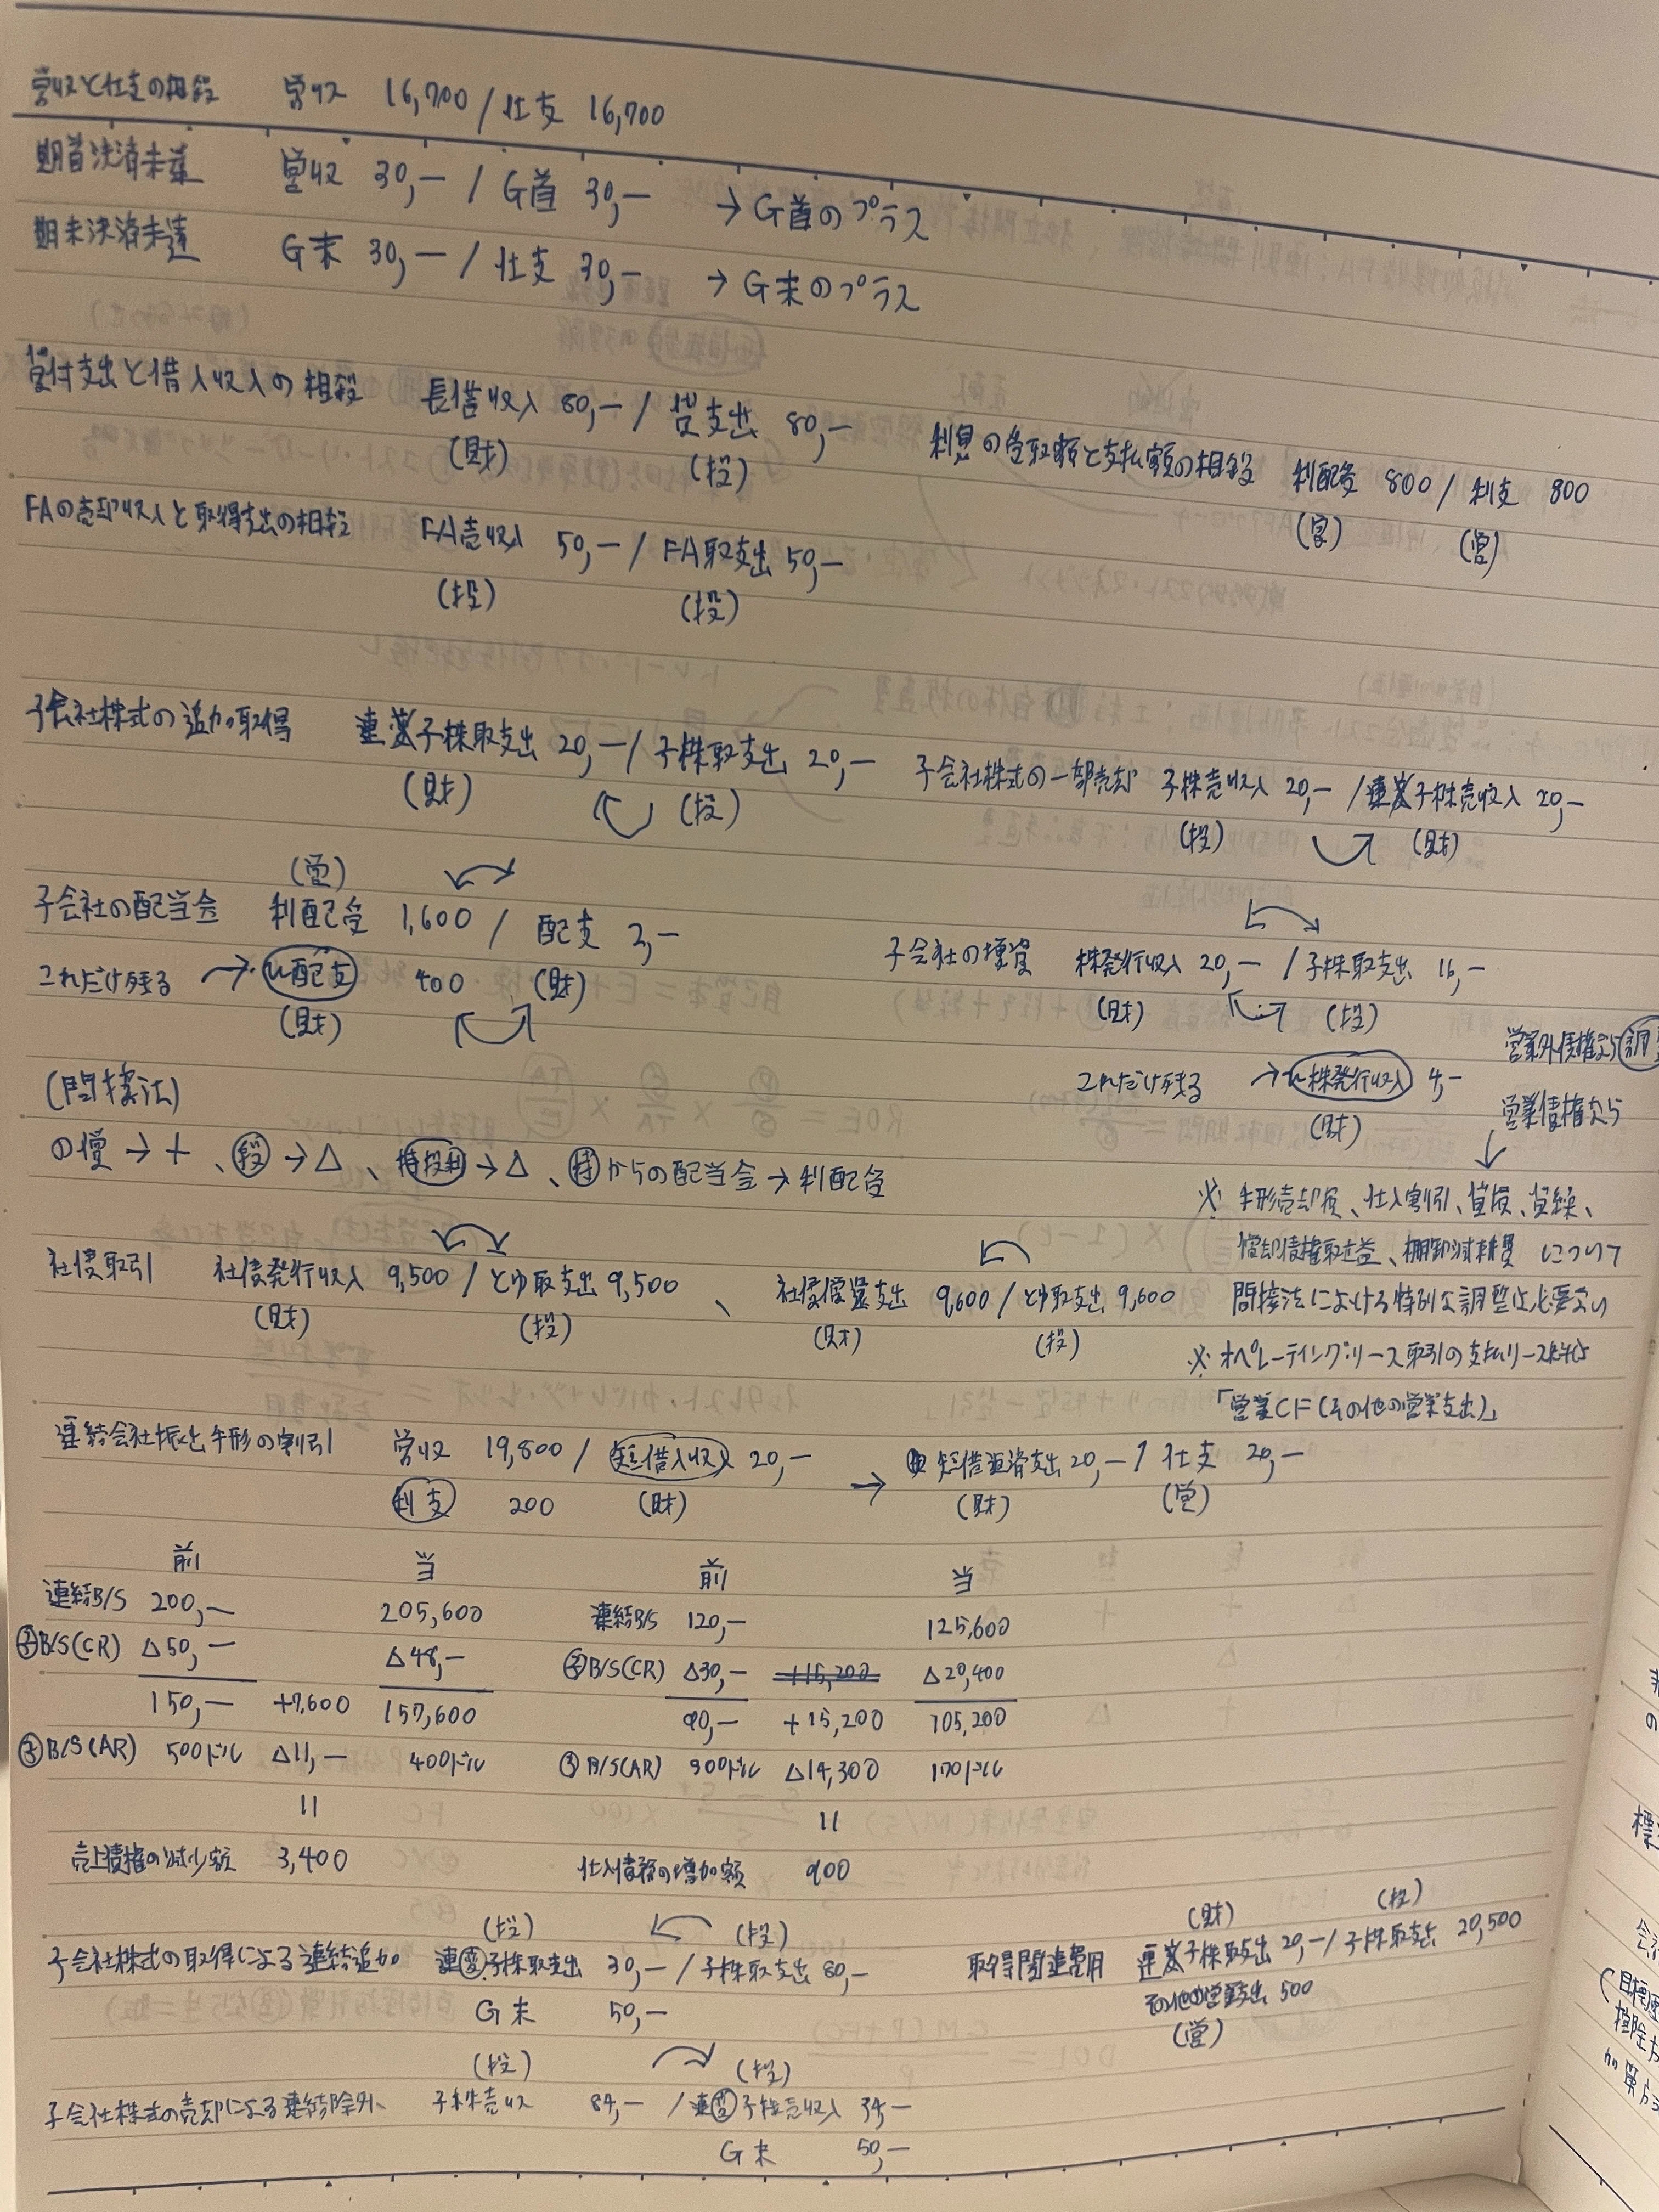 営収と仕支の相殺　営収 16,700 / 仕支 16,700
期首決済未達　営収 30,― / G首 30,― → G首のプラス
期末決済未達　G末 30,― / 仕支 30,― → G末のプラス
貸付支出と借入収入の相殺　長借収入 80,― / 貸支出 80,―
(財)　(投)
利息の受取額と支払額の相殺　利配受 800 / 利支 800
(営)　(営)
FAの売却収入と取得支出の相殺　FA売収入 50,― / FA取支出 50,―
(投)　(投)
子会社株式の追加取得　連x子株取支出 20,― / 子株取支出 20,―
(財)　(投)
子会社株式の一部売却　子株売収入 20,― / 連x子株売収入 20,―
(投)　(財)
(営)
子会社の配当金　利配受 1,600 / 配支 2,―
これだけ残る → n配支 400　(財)
(財)
子会社の増資　株発行収入 20,― / 子株取支出 16,―
(財)　(投)
これだけ残る → n株発行収入 4,―
(財)
営業外債権なら
営業債権なら
↓
(間接法)
の償 → + 、段 → △ 、持投利 → △ 、持からの配当金 → 利配受
※ 手形売却損、仕入割引、貸損、貸繰、
償却債権取立益、棚卸減耗費 について
間接法における特別な調整は必要ない
※ オペレーティング・リース取引の支払リース料は
「営業CF(その他の営業支出)」
社債取引　社債発行収入 9,500 / とゆ取支出 9,500 、 社債償還支出 9,600 / とゆ取支出 9,600
(財)　(投)　(財)　(投)
連結会社振出手形の割引　営収 19,800 / 短借入収入 20,― → 短借返済支出 20,― / 仕支 20,―
利支 200　(財)　(財)　(営)
前　当　前　当
連結B/S 200,―　205,600　連結B/S 120,―　125,600
②B/S(CR) △50,―　△48,―　②B/S(CR) △30,―　+15,200　△20,400
150,―　+7,600　157,600　90,―　+15,200　105,200
③B/S(AR) 500ドル　△11,―　400ドル　③B/S(AR) 300ドル　△14,300　170ドル
||　||
売上債権の減少額 3,400　仕入債務の増加額 900
(投)　(投)　(財)　(投)
子会社株式の取得による連結追加　連変子株取支出 30,― / 子株取支出 80,―
G末 50,―
取得関連費用　連x子株取支出 20,― / 子株取支出 20,500
その他の営業支出 500
(営)
(投)　(投)
子会社株式の売却による連結除外　子株売収 84,― / 連変子株売収入 34,―
G末 50,―